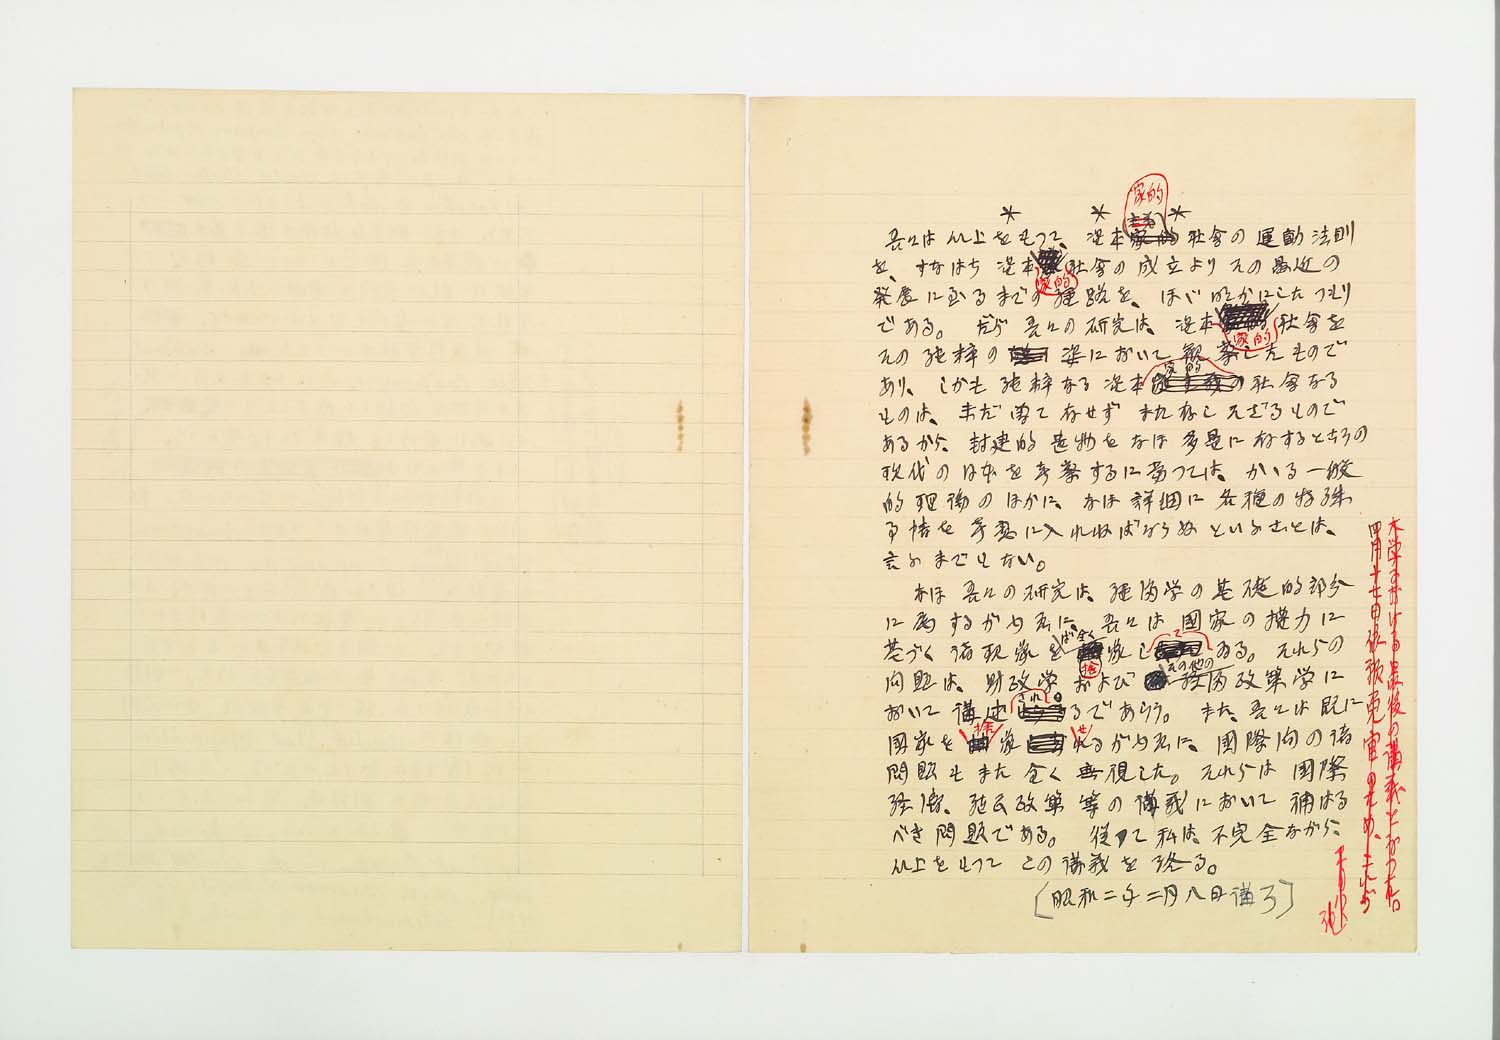 ＊ ＊ ＊
吾々は以上をもつて、資本家的社会の運動法則
を、すなはち資本家的社会の成立よりその最近の
発展に至るまでの経路を、ほゞ明かにしたつもり
である。だが吾々の研究は、資本家的社会を
その純粋の姿において観察したもので
あり、しかも純粋なる資本家的社会なる
ものは、まだ曽て存せずまた存しえざるもので
あるから、封建的遺物をなほ多量に存するところの
現代の日本を考察するに当つては、かゝる一般
的理論のほかに、なほ詳細に各種の特殊
事情を考慮に入れねばならぬといふことは、
言ふまでもない。
なほ吾々の研究は、経済学の基礎的部分
に属するが故に、吾々は国家の権力に
基づく諸現象をば全く捨象してゐる。それらの
問題は、財政学およびその他の経済政策学に
おいて講述されるであらう。また、吾々は既に
国家を捨象せるが故に、国際間の諸
問題もまた全く無視した。それらは国際
経済、植民政策等の講義において補はる
べき問題である。従つて私は、不完全ながら、
以上をもつてこの講義を終る。
［昭和二年二月八日講了］
大学における最後の講義となつた。
四月十七日依願免官のため、これが